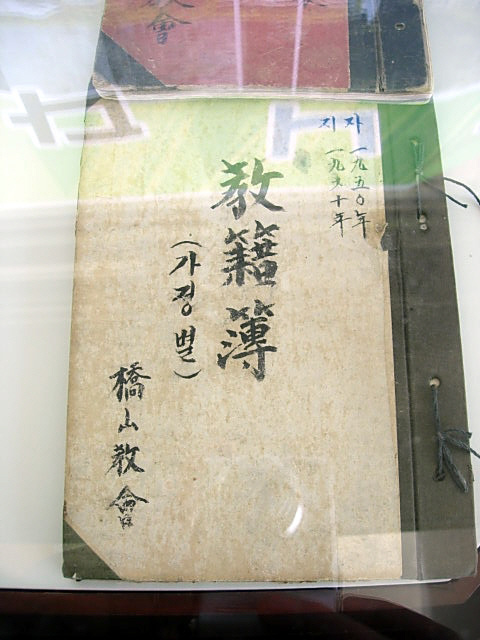 會
자 一九五〇年
지 一九六十年
教籍簿
(가정별)
橋山教會